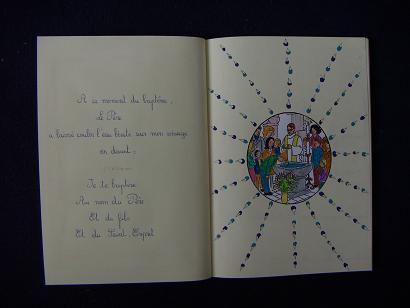 A ce moment du baptême,
Le Père
a laissé couler l'eau bénite sur mon visage
en disant :
Je te baptise
Au nom du Père
Et du fils
Et du Saint-Esprit